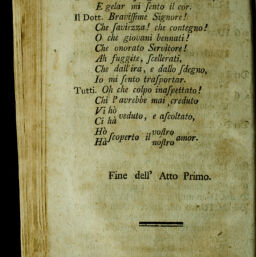 E gelar mi ſento il cor.
Il Dott. Braviſſime Signore!
Che ſavirzza! che contegno!
O che giovani bennati!
Che onorato Servitore!
Ah fuggite, ſcellerati,
Che dall'ira, e dallo ſdegno,
Io mi ſento traſportar.
Tutti. Oh che colpo inaſpettato!
Chi l'avrebbe mai creduto
Vi hò
Ci hà veduto, e aſcoltato,
Hò
Hà ſcoperto il voſtro
noſtro amor.
Fine dell' Atto Primo.